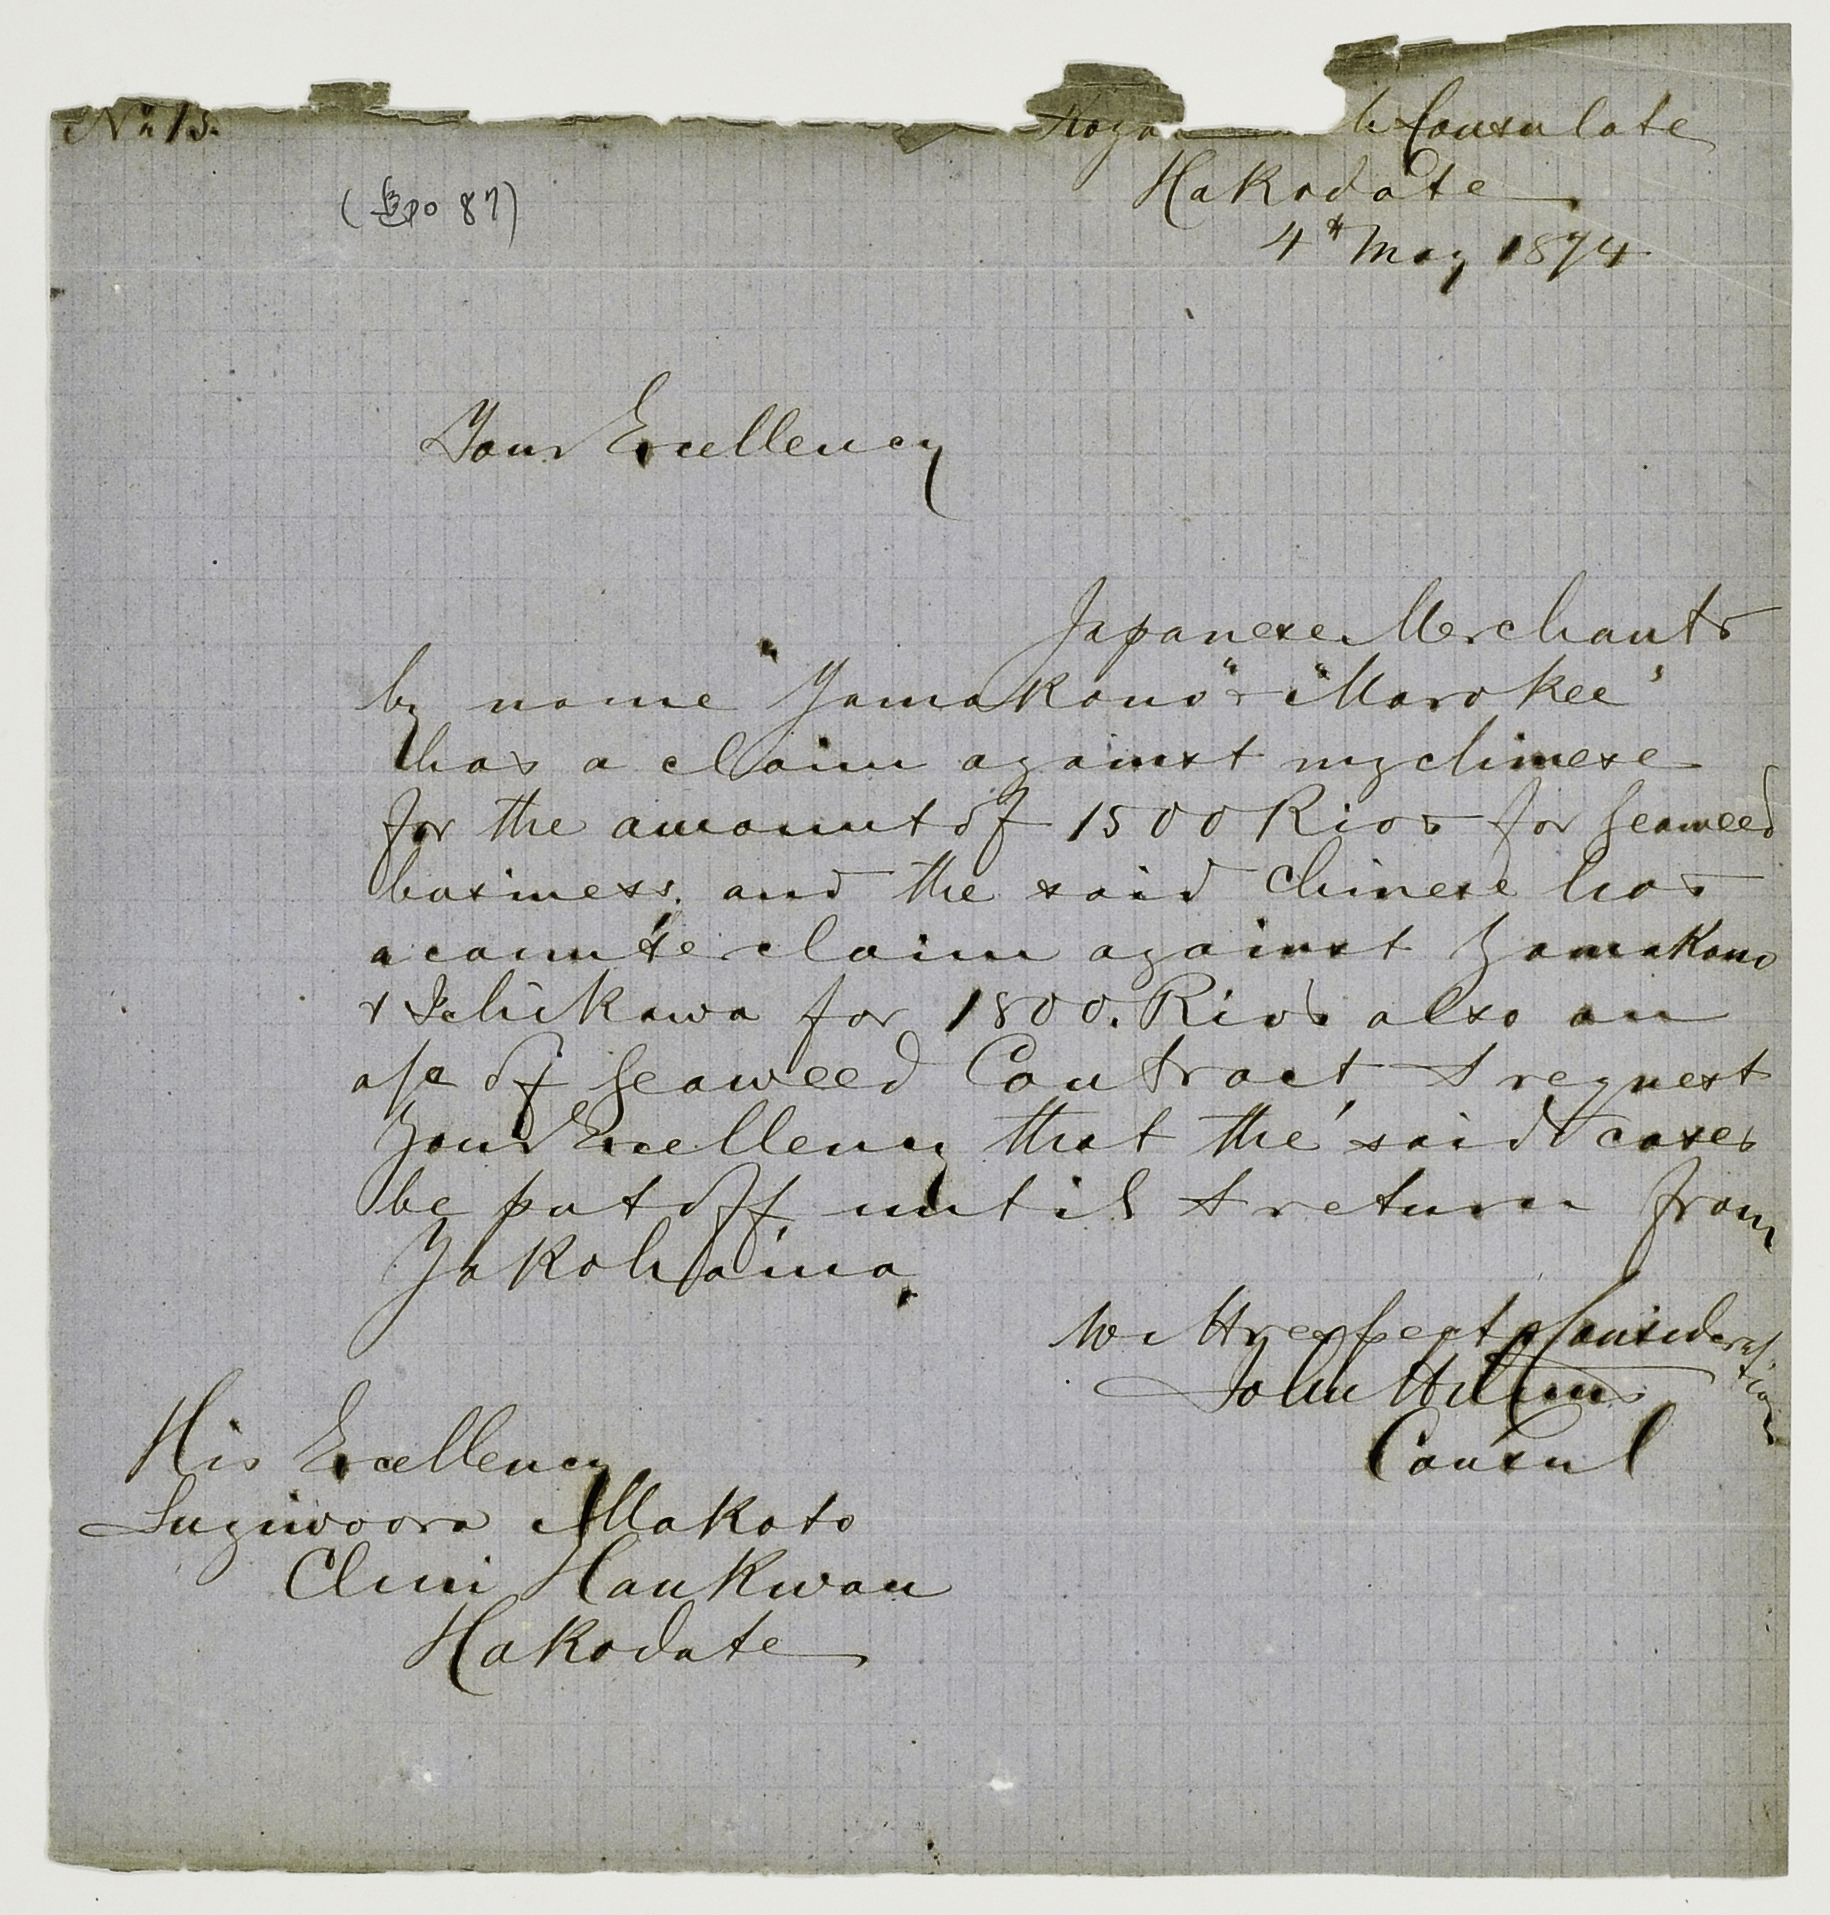 No 13.
Consulate
Hakodate
4th May 1874
87)
Your Excellency
Japanese Merchants
by name "Yamakano" & "Marokee"
has a claim against my chinese
for the amount of 1500 Rios for Seaweed
business. and the said Chinese has
a counter claim against Yamakano
& Ischikawa for 1800. Rios also on
a/c of Seaweed Contract, I request
Your Excellency that the said cases
be put off until I return from
Yokohama.
With respect & Consideration
John Will
Consul
His Excellency
Sugiwoora Makoto
Chiu Hankwan
Hakodate